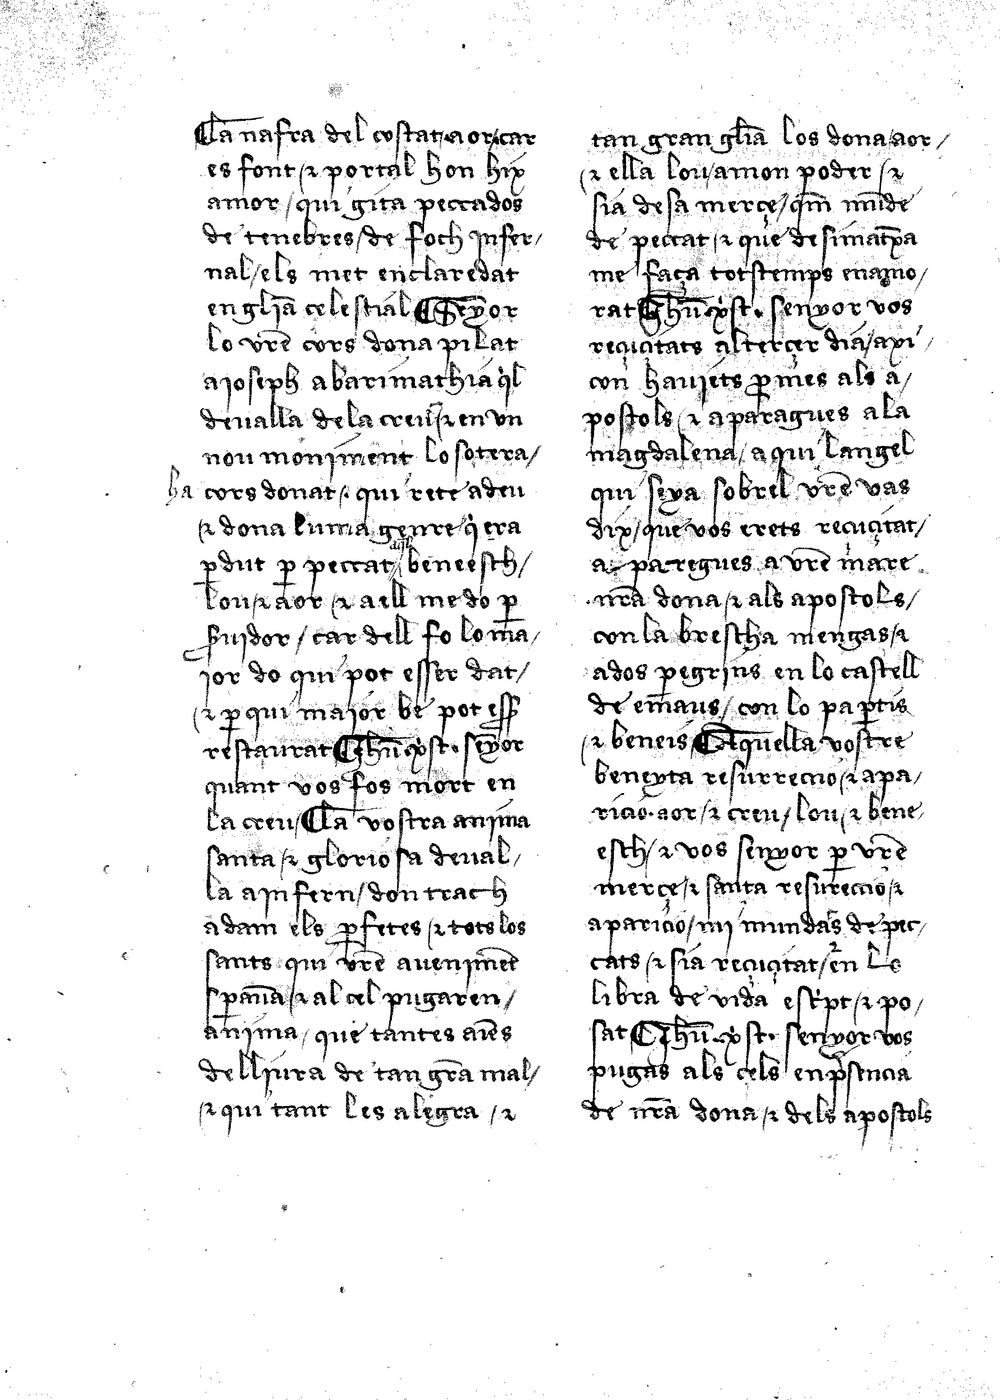 La nafra del costat / aor / car
es font / ⁊ portal hon hix
amor / qui gita peccados
de tenebres / de foch infer /
nal / els met en claredat
en glīa celestial Senyor
lo vr̄e cors dona pilat
a joseph abarimathia q̇l
deualla de la creu / ⁊ en vn
nou moniment lo sotera /
ha cors donat / qui rete a deu
⁊ dona lumā genre / q̇ era
ꝑdut ꝑ peccat / aq̄ll beneesch /
lou / ⁊ aor / ⁊ a ell me do ꝑ
s̄uidor / car dell fo lo ma /
jor do qui pot esser dat /
⁊ ꝑ qui major be pot ess̄
restaurat Jhū xp̄st · senyor
quant vos fos mort en
la creu / La vostra anima
santa / ⁊ gloriosa deual /
la a jnfern / don trach
adam els ꝓfetes / ⁊ tots los
sants qui vr̄e aueniment
sꝑaua / ⁊ al cel pugaren /
anima / que tantes aīes
delliura de tan grā mal /
⁊ qui tant les alegra / ⁊
tan gran glīa los dona / aor /
⁊ ella lou / a mon poder / ⁊
sia de sa merce / qm̄ munde
de peccat / ⁊ que de si matexa
me faça totstemps enamo /
rat Jhū xp̄st · senyor vos
reçuçitats al terçer dia / axi /
con hauiets ꝓmes als a /
postols / ⁊ aparagues a la
magdalena / a qui langel
qui seya sobrel vr̄e vas
dix / que vos erets reçuçitat /
a paregues a vr̄e mare
nr̄a dona / ⁊ als apostols /
con la brescha mengas / ⁊
a dos pegrins en lo castell
de emaus / con lo pa ꝑtis
⁊ beneis Aquella vostre
beneyta resurreccio / ⁊ apa /
ricio · aor / ⁊ creu / lou / ⁊ bene /
esch / ⁊ vos senyor ꝑ vr̄e
merçe / ⁊ santa resureccio / ⁊
aparicio / mi mundas de pec /
cats / ⁊ sia reçuçitat / en lo
libra de vida escͥpt / ⁊ po /
sat Jhū · xp̄st · senyor vos
pugas als cels en p̄sencia
de nr̄a dona / ⁊ dels apostols